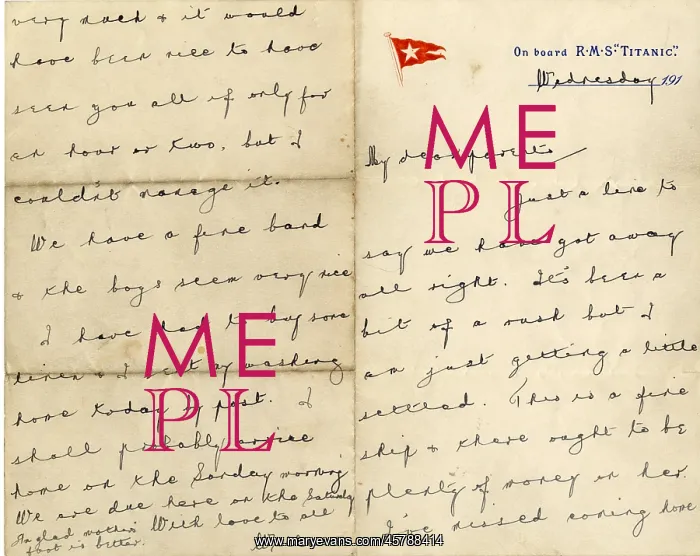 On board R.M.S. "TITANIC."
Wednesday 191
My dear parents
Just a line to
say we have got away
all right. It's been a
bit of a rush but I
am just getting a little
settled. This is a fine
ship & there ought to be
plenty of money on her.
I've missed coming home
very much & it would
have been nice to have
seen you all if only for
an hour or two, but I
couldn't manage it.
We have a fine band
& the boys seem very nice
I have had to buy some
linen & I sent my washing
home today by post. I
shall probably arrive
home on the Sunday morning
We are due here on the Saturday
I'm glad mother's foot is better. With love to all
ME
PL
ME
PL
www.maryevans.com/45788414